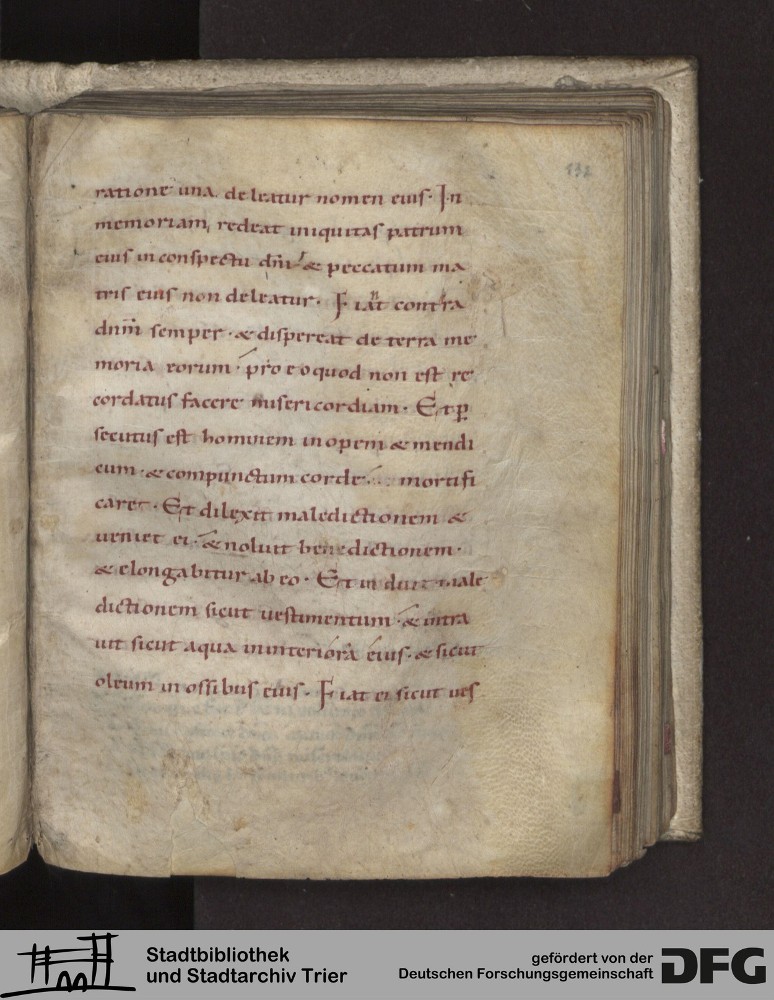 132
ratione una deleatur nomen eius· In
memoriam redeat iniquitas patrum
eius in conspectu dn̄i & peccatum ma
tris eius non deleatur· Fiant contra
dnm̄ semper· & dispereat de terra me
moria eorum· pro eo quod non est re
cordatus facere misericordiam· Et ꝑ
secutus est hominem inopem & mendi
cum· & compunctum corde mortifi
caret· Et dilexit maledictionem &
ueniet ei· & noluit benedictionem·
& elongabitur ab eo· Et induit male
dictionem sicut uestimentum· & intra
uit sicut aqua in interiora eius· & sicut
oleum in ossibus eius· Fiat ei sicut ues
Stadtbibliothek
und Stadtarchiv Trier
gefördert von der
Deutschen Forschungsgemeinschaft
DFG